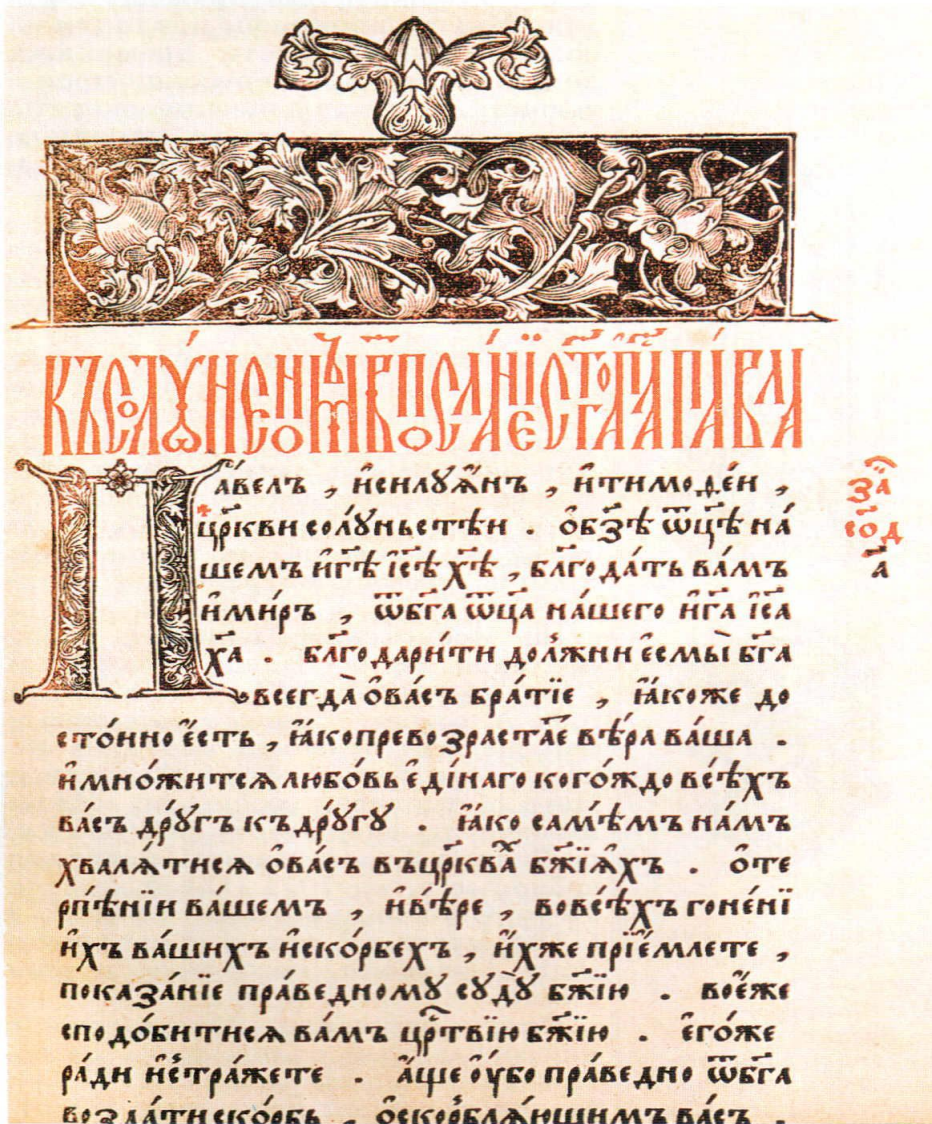 КЪ СОЛꙊНЕНОМЪ В ПОСЛАНЇЕ СТГО АП ПАВЛА
Па́велъ , и҆силꙋа҆́нъ , и҆тимоѳе́и ,
цр҃кви солꙋ́ньстѣи . ѻ҆бз҃ѣ ѿц҃ѣ на́
шемъ и҆гⷭ҇ѣ і҆с҃ѣ хⷭ҇ѣ , блгⷣода́ть ва́мъ
и҆ми́ръ , ѿбг҃а ѿц҃а на́шего и҆гⷭ҇а і҆с҃а
хⷭ҇а . блгⷣодари́ти до́лжни є҆смы̀ бг҃а
всегда̀ ѻ҆ва́съ бра́тїе , ꙗ҆́коже до
сто́йно є҆́сть , ꙗ҆́ко превозраста́е вѣ́ра ва́ша .
и҆мно́житсѧ любо́вь є҆ді́наго кого́ждо всѣ́хъ
ва́съ дрꙋ́гъ къ дрꙋ́гꙋ . ꙗ҆́ко самѣ́мъ на́мъ
хвалѧ́тисѧ ѻ҆ва́съ въ цр҃ква́ бж҃їѧхъ . ѻ҆те
рпѣ́нїи ва́шем , и҆вѣ́ре , вовсѣ́хъ гоне́нї
и҆хъ ва́шихъ и҆ско́рбехъ , и҆́хже прїе́млете ,
показа́нїе пра́ведномꙋ сꙋдꙋ̀ бж҃їю . воє҆́же
сподо́битисѧ ва́мъ црⷭ҇твїю бж҃їю . є҆го́же
ра́ди и҆стра́жете . а҆́ще ᲂу҆́бо пра́ведно ѿбг҃а
возда́ти ско́рбь , ѻ҆скорблѧ́ющимъ ва́съ .
за
со҃д
а҃